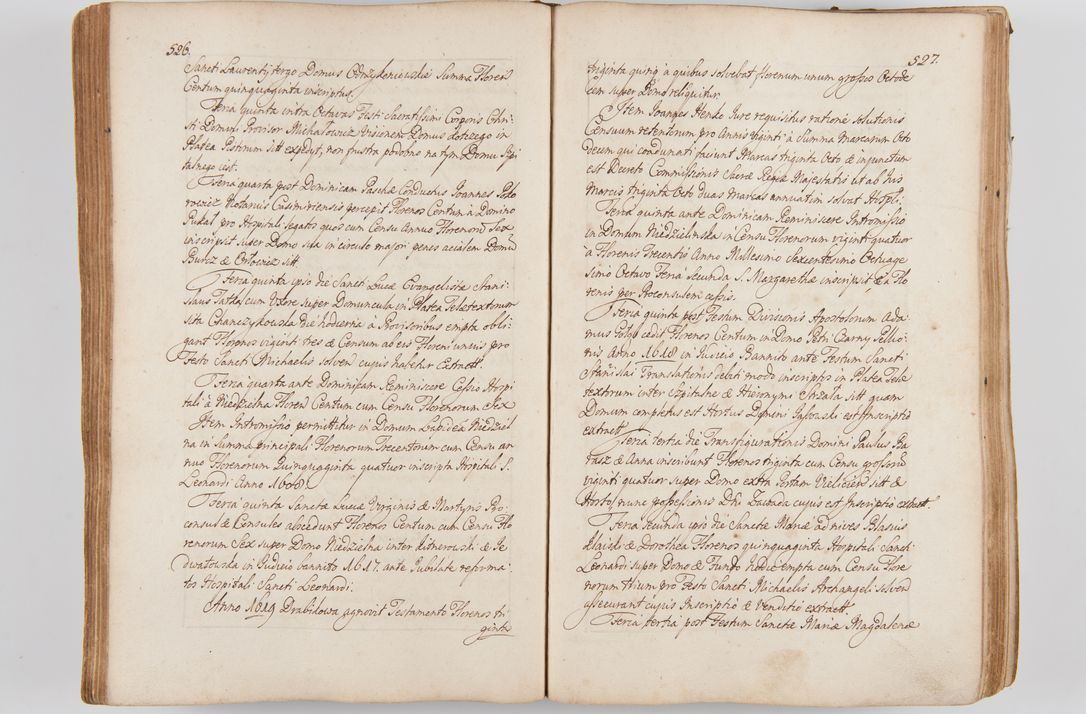 526.
Sancti Laurentij tergo Domus Summa Floren
Centum quinquaginta inscriptus.
Feria quinta intra Octavas Festi Sacratissimi Corporis Chri-
sti Domini Provisor Michałowicz Visionem Domus
Platea Pistrinum sitt expedyt, non frustra podobno na tym Domu Szpi
talnego iest.
Feria quarta post Dominicam Paschæ Conductus Joannes
Notarius Casimiriensis percepit Florenos Centum à Domino
Pukal pro Hospitali legatos quos cum Censu Annuo Florenorũ Sex
inscripsit super Domo sita in circulo majori penes acialem Domũ
& Orłowicz sitt.
Feria quinta ipso die Sancti Lucæ Evangelistæ Stani-
slaus cum Uxore super Domuncula in Platea Teletextorum
sita die hodierna à Provisoribus empta obli-
gant Florenos viginti tres & Censum ab eis Floreni unius pro
Festo Sancti Michaelis solven cujus habetur Extractt.
Feria quarta ante Dominicam Reminiscere Cessio Hospi
tali à Niedzielna Floren Centum cum Censu Florenorum Sex
Item Intromissio permittitur in Domum Niedziel
na in Summa principali Florenorum Trecentorum cum Censu an
nuo Florenorum Quinquaginta quatuor inscripta Hospitali S.
Leonardi Anno
Feria quinta Sanctæ Luciæ Virginis & Martyris Pro-
consul & Consules abscedunt Florenos Centum cum Censu Flo
renorum Sex super Domo Niedzielna inter & Je
in Judicio bannito 1617. ante Jubilate reforma-
tos Hospitali Sancti Leonardi.
Anno 1619 Drabikowa agnovit Testamento Florenos tri
ginta
527.
triginta quinq à quibus solvebat florenum unum grossos Octode
cim super Domo reliquitur.
Item Joannes Henko Jure requisitus ratione solutionis
Censuum retentorum pro Annis viginti à Summa Marcarum Octo
decem qui condunati faciunt Marcas triginta Octo & injunctum
est Decreto Commissionis Sacræ Regiæ Majestatis ut ab his
Marcis triginta Octo duas Marcas annuatim solvat Hospli.
Feria quinta ante Dominicam Reminiscere Intromissio
in Domum Niedzielinska in Censu Florenorum viginti quatuor
à Florenis Trecentis Anno Millesimo Sexcentesimo Octuage
simo Octavo Feria Secunda S. Margarethæ inscripsit, & à Flo
renis per Proconsulem cessis.
Feria quinta post Festum Divisionis Apostolorum Ada
mus cedit Florenos Centum in Domo Petri Czarny Pellio-
nis Anno 1618 in Judicio Bannito ante Festum Sancti
Stanislai Translationis delati modo inscriptio in Platea Tele
textorum inter Szpitalne & Hieronymi Strzała sitt quam
Domum completus est Hortus Domini est Inscriptio
extractt.
Feria tertia die Transfigurationis Domini Paulus Ba-
rasz & Anna inscribunt Florenos triginta cum Censu grossorũ
viginti quatuor super Domo extra Portam sitt &
Horto, nunc possessionis Dni Zawada cujus est Inscriptio extractt.
Feria Secunda ipso die Sanctæ Mariæ ad nives Blasius
& Dorothea Florenos quinquaginta Hospitali Sancti
Leonardi super Domo & Fundo hodie empta cum Censu Flore
norum trium pro Festo Sancti Michaelis Archangeli solvend
assecurant cujus Inscriptio & Venditio extractt.
Feria tertia post Festum Sanctæ Mariæ Magdalenæ